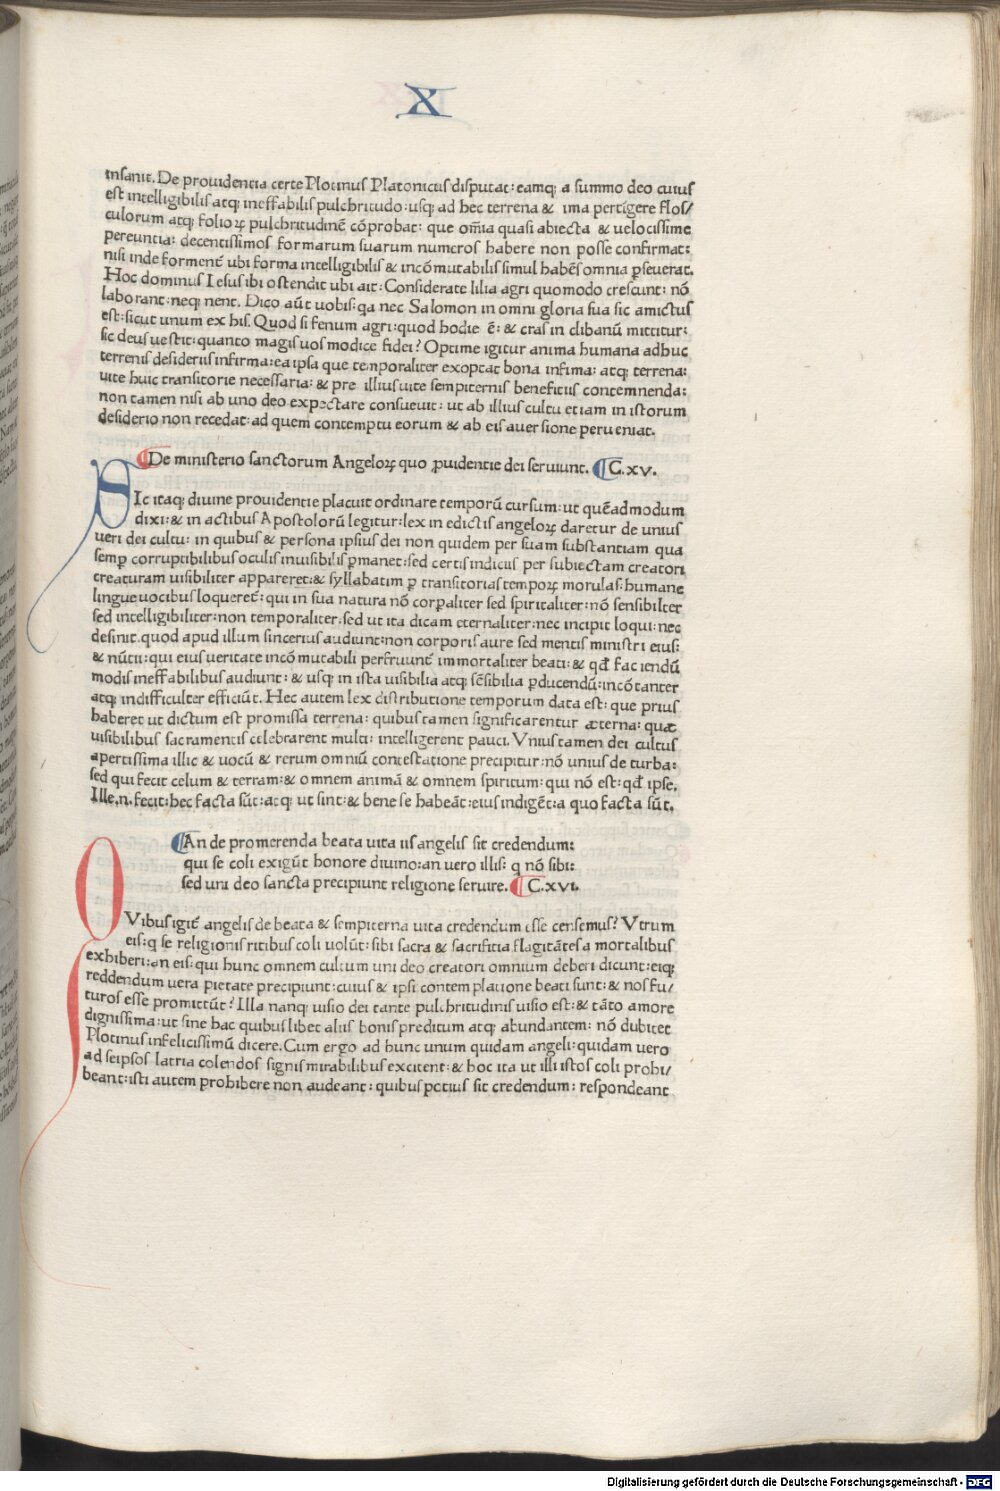 X
insanit. De prouidentia certe Plotinus Platonicus disputat: eamq; a summo deo cuius
est intelligibilis atq; ineffabilis pulchritudo: usq; ad hec terrena & ima pertigere flos/
culorum atq; folioꝝ pulchritudinē cōprobat: que om̄ia quasi abiecta & uelocissime
pereuntia: decentissimos formarum suarum numeros habere non posse confirmat:
nisi inde forment᷑ ubi forma intelligibilis & incōmutabilis simul habēs omnia ꝑseuerat.
Hoc dominus Iesus ibi ostendit ubi ait: Considerate lilia agri quomodo crescunt: nō
laborant: neq; nent. Dico aūt uobis: qa nec Salomon in omni gloria sua sic amictus
est: sicut unum ex his. Quod si fenum agri: quod hodie ē: & cras in clibanū mittitur:
sic deus uestit: quanto magis uos modice fidei? Optime igitur anima humana adhuc
terrenis desideriis infirma: ea ipsa que temporaliter exoptat bona infima: atq; terrena:
uite huic transitorie necessaria: & pre illius uite sempiternis beneficiis contemnenda:
non tamen nisi ab uno deo expectare consueuit: ut ab illius cultu etiam in istorum
desiderio non recedat: ad quem contemptu eorum & ab eis auersione perueniat.
¶De ministerio sanctorum Angeloꝝ quo ꝓuidentie dei seruiunt. ¶C.xv.
SIc itaq; diuine prouidentie placuit ordinare temporū cursum: ut quēadmodum
dixi: & in actibus Apostolorū legitur: lex in edictis angeloꝝ daretur de unius
ueri dei cultu: in quibus & persona ipsius dei non quidem per suam substantiam qua
semꝑ corruptibilibus oculis inuisibilis ꝑmanet: sed certis indicus per subiectam creatori
creaturam uisibiliter appareret: & syllabatim ꝑ transitorias tempoꝝ morulas: humane
lingue uocibus loqueret᷑: qui in sua natura nō corꝑaliter sed spiritaliter: nō sensibilter
sed intelligibiliter: non temporaliter. sed ut ita dicam eternaliter: nec incipit loqui: nec
desinit. quod apud illum sincerius audiunt: non corporis aure sed mentis ministri eius:
& nūtii: qui eius ueritate incōmutabili perfruunt᷑ immortaliter beati: & qđ faciendū
modis ineffabilibus audiunt: & usq; in ista uisibilia atq; sēsibilia ꝑducendū: incōtanter
atq; indifficulter efficiūt. Hec autem lex distributione temporum data est: que prius
haberet ut dictum est promissa terrena: quibus tamen significarentur æterna: quæ
uisibilibus sacramentis celebrarent multi: intelligerent pauci. Vnius tamen dei cultus
apertissima illic & uocū & rerum omniū contestatione precipitur: nō unius de turba:
sed qui fecit celum & terram: & omnem animā & omnem spiritum: qui nō est: qđ ipse.
Ille.n. fecit: hec facta sūt: atq; ut sint: & bene se habeāt: eius indigēt: a quo facta sūt.
¶An de promerenda beata uita iis angelis sit credendum:
qui se coli exigūt honore diuino: an uero illis: q nō sibi:
sed uni deo sancta precipiunt religione seruire. ¶C.xvi.
QVibus igit᷑ angelis de beata & sempiterna uita credendum esse censemus? Vtrum
eis: q se religionis ritibus coli uolūt: sibi sacra & sacrifitia flagitātes a mortalibus
exhiberi: an eis: qui hunc omnem cultum uni deo creatori omnium deberi dicunt: eiq;
reddendum uera pietate precipiunt: cuius & ipsi contemplatione beati sunt: & nos fu/
turos esse promittūt? Illa nanq; uisio dei tante pulchritudinis uisio est: & tāto amore
dignissima: ut sine hac quibuslibet aliis bonis preditum atq; abundantem: nō dubitet
Plotinus infelicissimū dicere. Cum ergo ad hunc unum quidam angeli: quidam uero
ad seipsos latria colendos signis mirabilibus excitent: & hoc ita ut illi istos coli prohi/
beant: isti autem prohibere non audeant: quibus potius sit credendum: respondeant
Digitalisierung gefördert durch die Deutsche Forschungsgemeinschaft - DFG